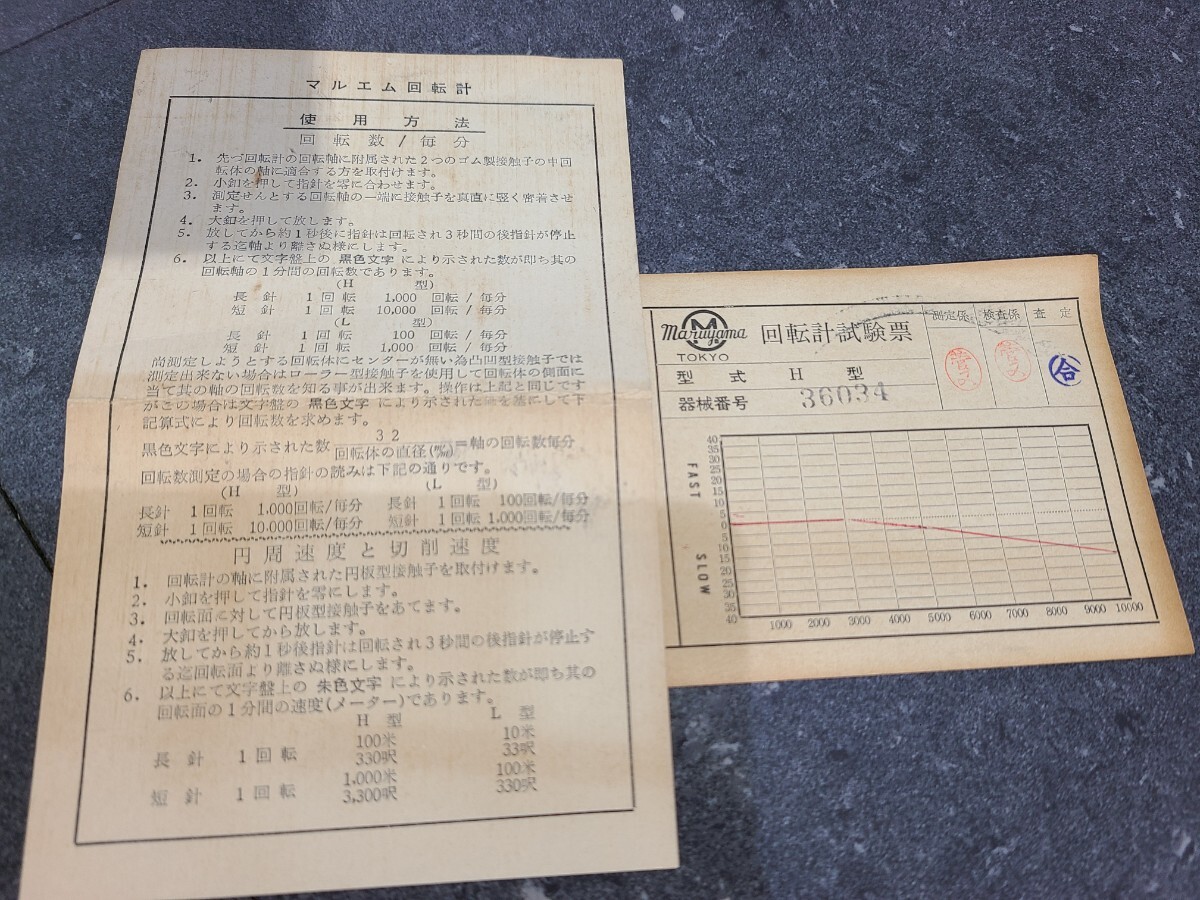 マルエム回転計
使用方法
回転数/毎分
1. 先づ回転計の回転軸に附属された2つのゴム製接触子の中回
転体の軸に適合する方を取付けます。
2. 小釦を押して指針を零に合わせます。
3. 測定せんとする回転軸の一端に接触子を真直に堅く密着させ
ます。
4. 大釦を押して放します。
5. 放してから約1秒後に指針は回転され3秒間の後指針が停止
する迄軸より離さぬ様にします。
6. 以上にて文字盤上の 黒色文字 により示された数が即ち其の
回転軸の1分間の回転数であります。
(H 型)
長針 1回転 1,000 回転/毎分
短針 1回転 10,000 回転/毎分
(L 型)
長針 1回転 100 回転/毎分
短針 1回転 1,000 回転/毎分
尚測定しようとする回転体にセンターが無い為凸凹型接触子では
測定出来ない場合はローラー型接触子を使用して回転体の側面に
当て其の軸の回転数を知る事が出来ます。操作は上記と同じです
がこの場合は文字盤の 黒色文字 により示された を基にして下
記算式により回転数を求めます。
黒色文字により示された数 32/回転体の直径(㎜)=軸の回転数毎分
回転数測定の場合の指針の読みは下記の通りです。
(H 型) (L 型)
長針 1回転 1,000回転/毎分 長針 1回転 100回転/毎分
短針 1回転 10,000回転/毎分 短針 1回転 1,000回転/毎分
円周速度と切削速度
1. 回転計の軸に附属された円板型接触子を取付けます。
2. 小釦を押して指針を零にします。
3. 回転面に対して円板型接触子をあてます。
4. 大釦を押してから放します。
5. 放してから約1秒後指針は回転され3秒間の後指針が停止す
る迄回転面より離さぬ様にします。
6. 以上にて文字盤上の 朱色文字 により示された数が即ち其の
回転面の1分間の速度(メーター)であります。
H 型 L 型
長針 1回転 100米 10米
330呎 33呎
短針 1回転 1,000米 100米
3,300呎 330呎
M
Maruyama
TOKYO
回転計試験票
測定係 検査係 査定
合
型式 H 型
器械番号 36034
FAST
SLOW
40
35
30
25
20
15
10
5
0
5
10
15
20
25
30
35
40
1000 2000 3000 4000 5000 6000 7000 8000 9000 10000